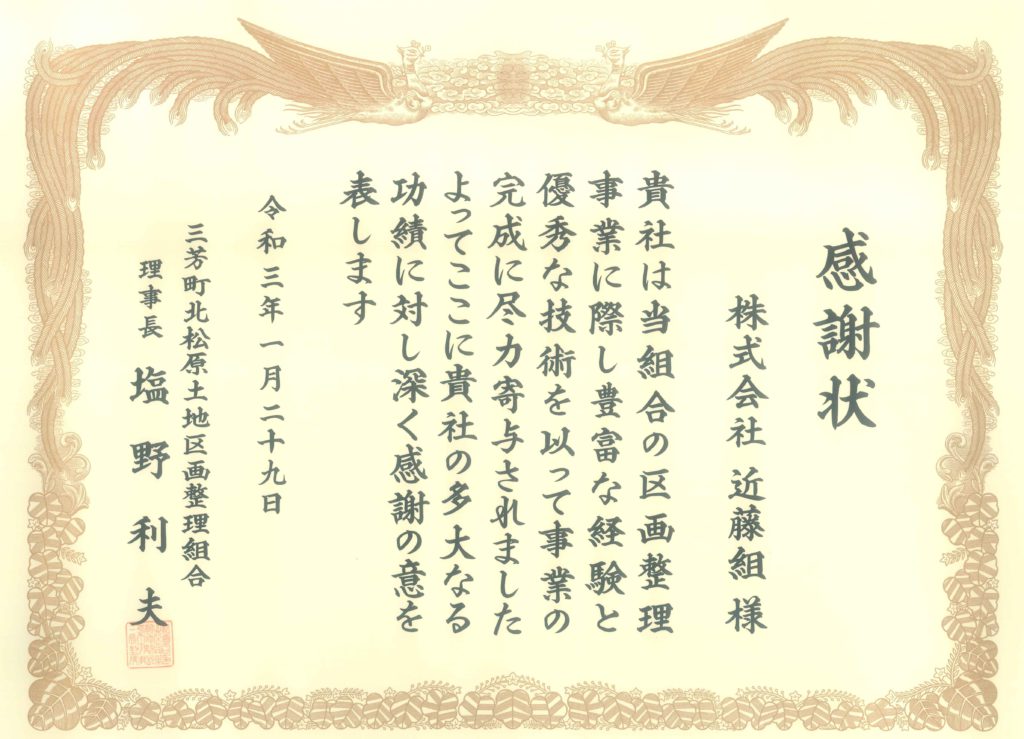 感謝状
株式会社 近藤組 様
貴社は当組合の区画整理
事業に際し豊富な経験と
優秀な技術を以って事業の
完成に尽力寄与されました
よってここに貴社の多大なる
功績に対し深く感謝の意を
表します
令和三年一月二十九日
三芳町北松原土地区画整理組合
理事長 塩野利夫